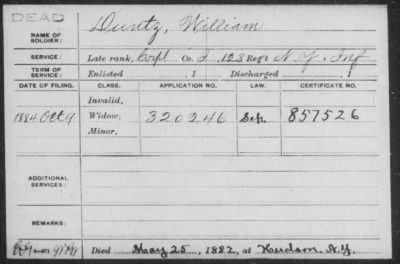 DEAD
NAME OF SOLDIER: Duntz, William
SERVICE: Late rank, Corpl Co. I, 128 Reg't N.Y. Inf
TERM OF SERVICE: Enlisted , 1 Discharged , 1
DATE OF FILING. CLASS. APPLICATION NO. LAW. CERTIFICATE NO.
Invalid,
1884 Oct 9 Widow, 320246 Gen. 857526
Minor,
ADDITIONAL SERVICES:
REMARKS:
Died May 25, 1882, at Hudson, N.Y.